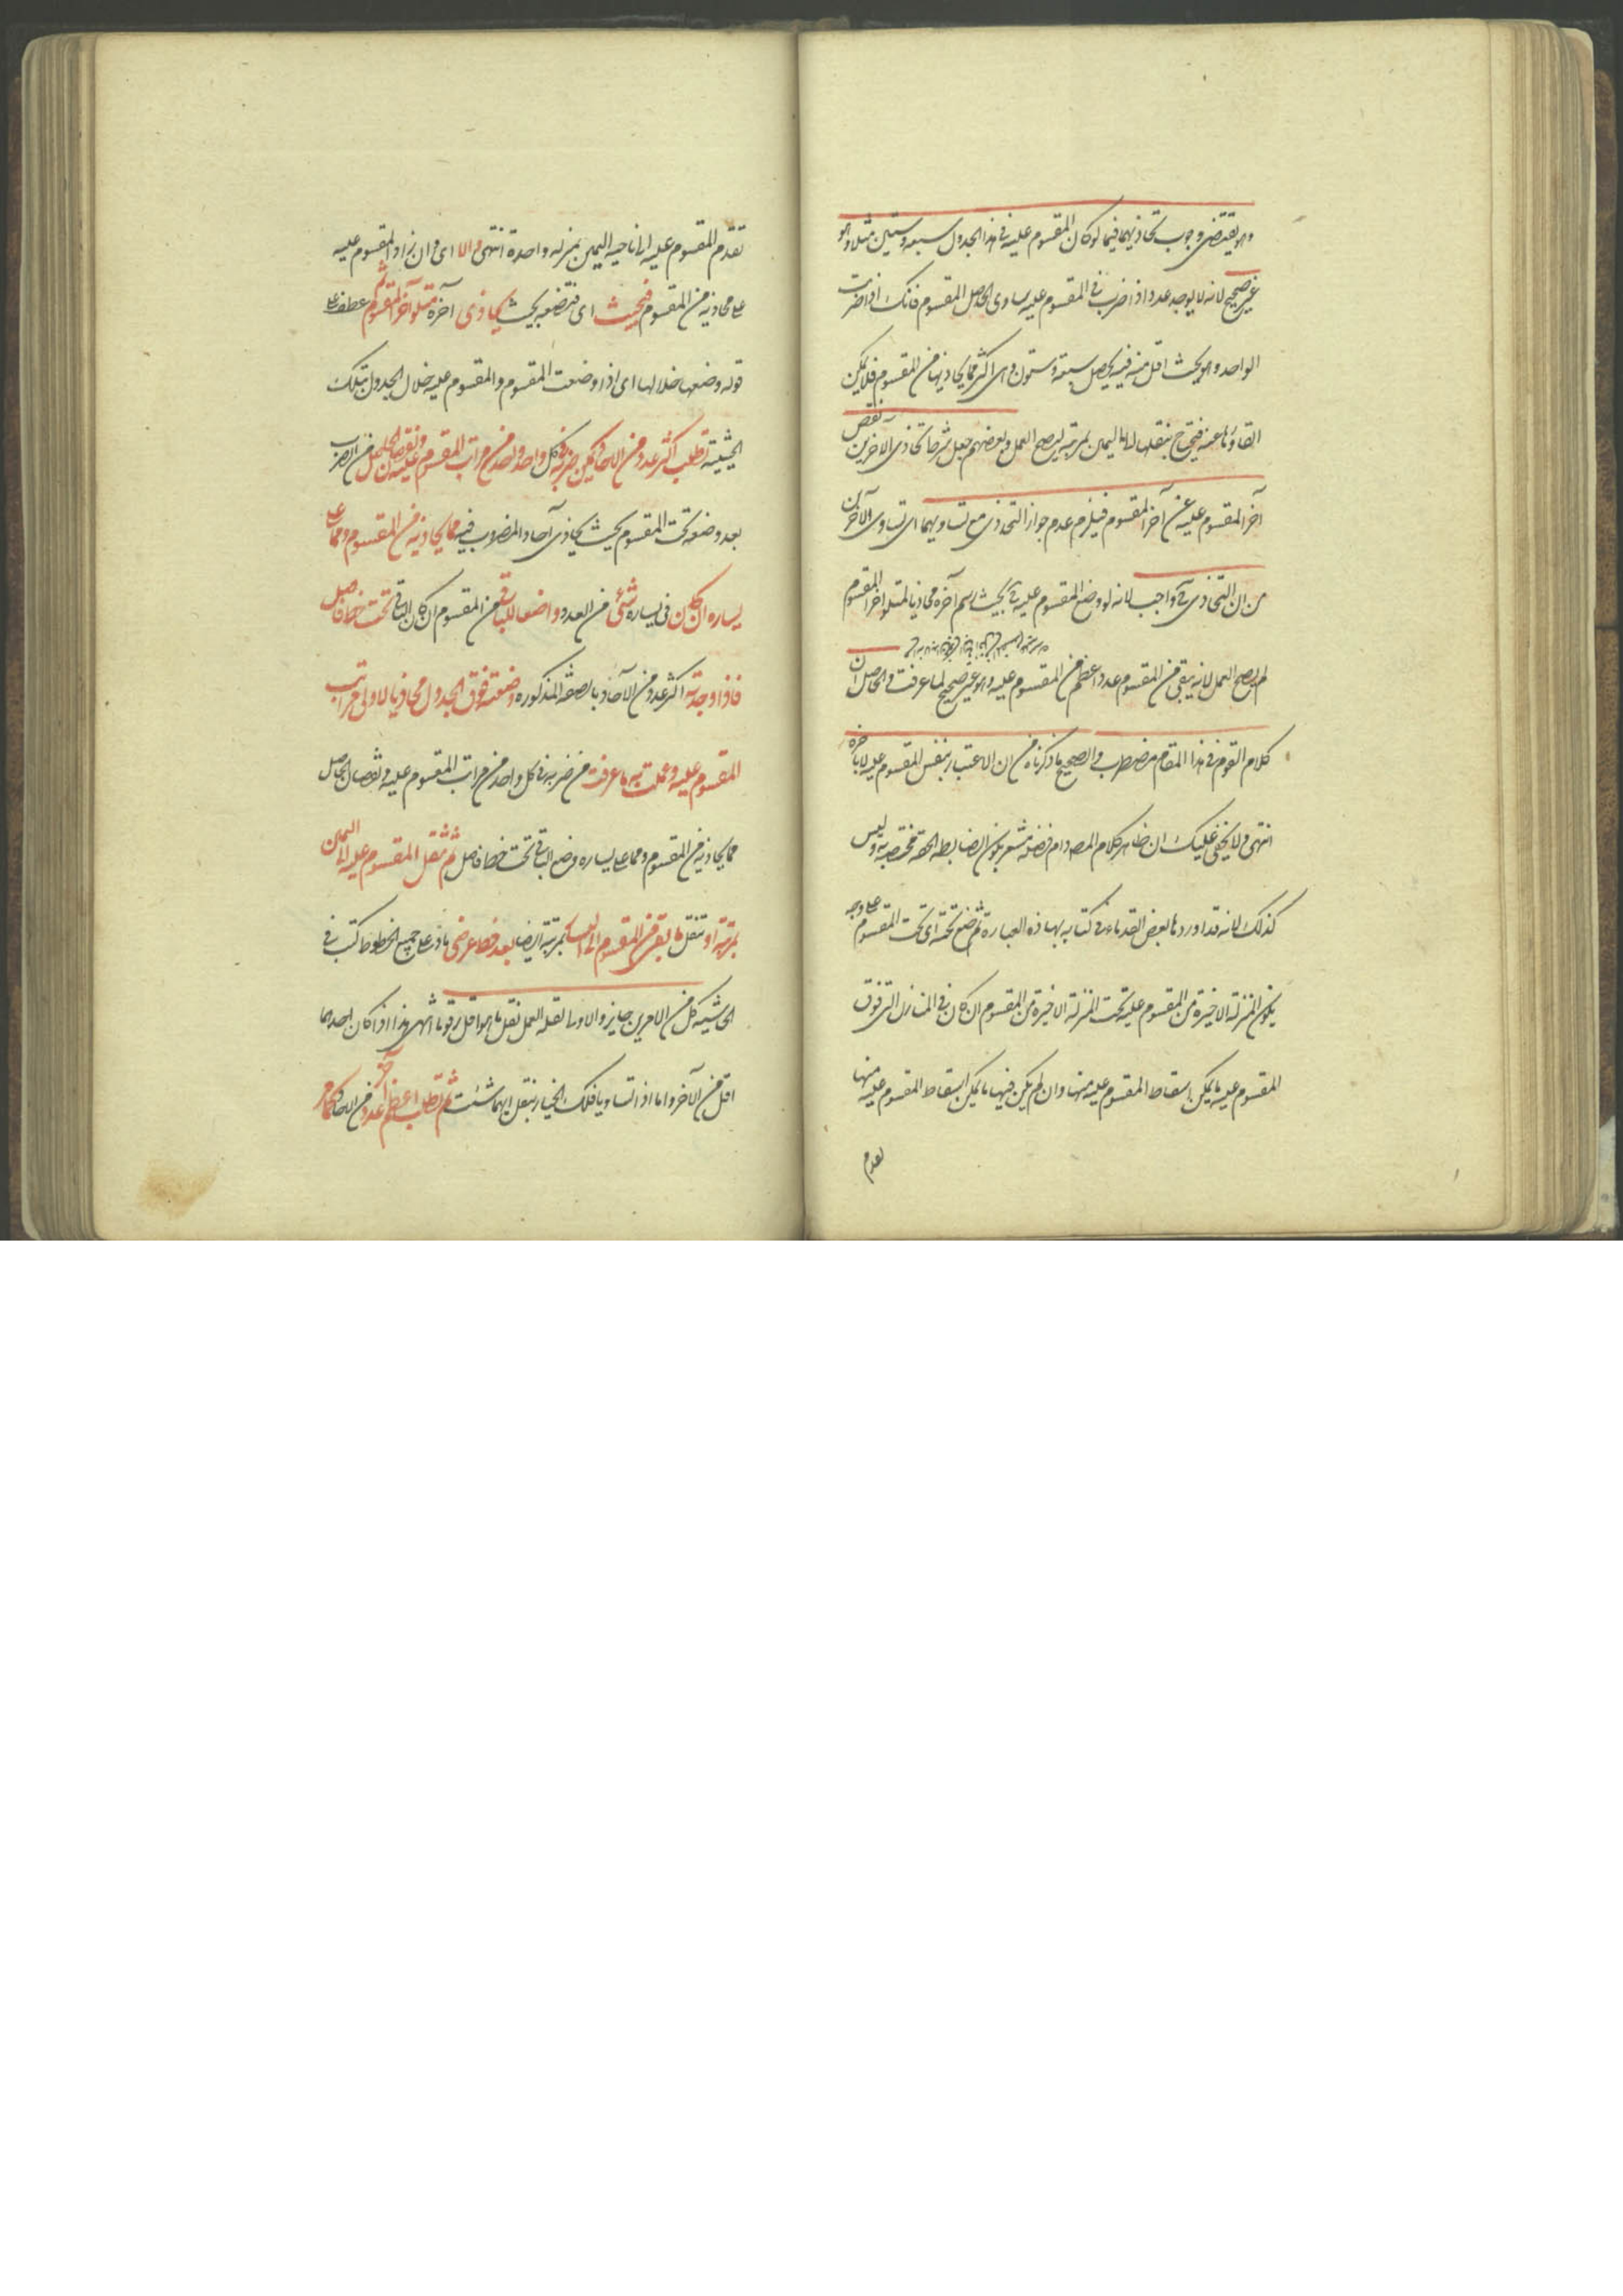 وهو يقتضى وجوب تحاذيهما فيما لو كان المقسوم عليه فى هذا الجدول سبعة وستين مثلا وهو
غير صحيح لانه لا يوجد عدد اذا ضرب فى المقسوم عليه ساوى الحاصل المقسوم فانك اذا ضربت
الواحد وهو بحيث اقل منه فيه يحصل سبعة وستون وهى اكثر مما يحاذيها من المقسوم فلا يمكن
القاؤها عنه فيحتاج بنقلها الى اليمين بمرتبة ليصح العمل وبعضهم جعل شرط تحاذى الاخرين نقص
آخر المقسوم عليه عن آخر المقسوم فيلزم عدم جواز التحاذى مع تساويهما اى تساوى الآخرين
من ان التحاذى ح واجب لانه لو وضع المقسوم عليه ح بحيث يرسم آخره محاذيا لمتلو اخر المقسوم
لم يصح العمل لانه يبقى من المقسوم عددا اعظم من المقسوم عليه وهو غير صحيح لما عرفت والحاصل ان
كلام القوم فى هذا المقام مضطرب والصحيح ما ذكرناه من ان الاعتبار بنفس المقسوم عليه لا باخره
انتهى ولا يخفى عليك ان ظاهر كلام المص دام فضله مشعر بكون الضابطة الحقة مختصة به وليس
كذلك لانه قد اوردها بعض القدماء فى كتابه بهاذه العبارة ثم ضع تحته اى تحت المقسوم على وجه
يكون المنزلة الاخيرة من المقسوم عليه تحت المنزلة الاخيرة من المقسوم ان كان فى المنازل التى فوق
المقسوم عليه ما يمكن اسقاط المقسوم عليه منها وان لم يكن فيها ما يمكن اسقاط المقسوم عليه منها
تقدم
تقدم المقسوم عليه الى ناحية اليمين بمنزلة واحدة انتهى والا اى وان زاد المقسوم عليه
على محاذيه من المقسوم فبحيث اى فتضعه بحيث يحاذى آخره متلو آخر المقسوم ثم عطف على
قوله وضعها خلالها اى اذا وضعت المقسوم والمقسوم عليه خلال الجدول بتلك
الحيثية تطلب اكثر عدد من الاحاد يمكن ضربه فى كل واحد واحد من مراتب المقسوم عليه ونقصان الحاصل من الضرب
بعد وضعه تحت المقسوم بحيث يحاذى آحاد المضروب فيه مما يحاذيه من المقسوم ومما على
يساره ان كان فى يساره شئى من العدد واضعا للباقى من المقسوم ان كان الباقى تحت خط فاصل
فاذا وجدته اكثر عدد من الآحاد بالصفة المذكوره وضعته فوق الجدول محاذيا لاولى مراتب
المقسوم عليه وعملت به ما عرفت من ضربه فى كل واحد من مراتب المقسوم عليه ونقصان الحاصل
مما يحاذيه من المقسوم ومما على يساره ووضع الباقى تحت خط فاصل ثم تنقل المقسوم عليه الى اليمين
بمرتبة او تنقل ما بقى من المقسوم الى اليسار بمرتبة ايضا بعد خط عرضى مار على جميع الخطوط كتب فى
الحاشيه كل من الامرين جايز والاولى لقلة العمل نقل ما هو اقل رقوما انتهى هذا اذا كان احدهما
اقل من الآخر واما اذا تساويا فلك الخيار بنقل ايهما شئت ثم تطلب اعظم عدد آخر من الاحاد كما مر